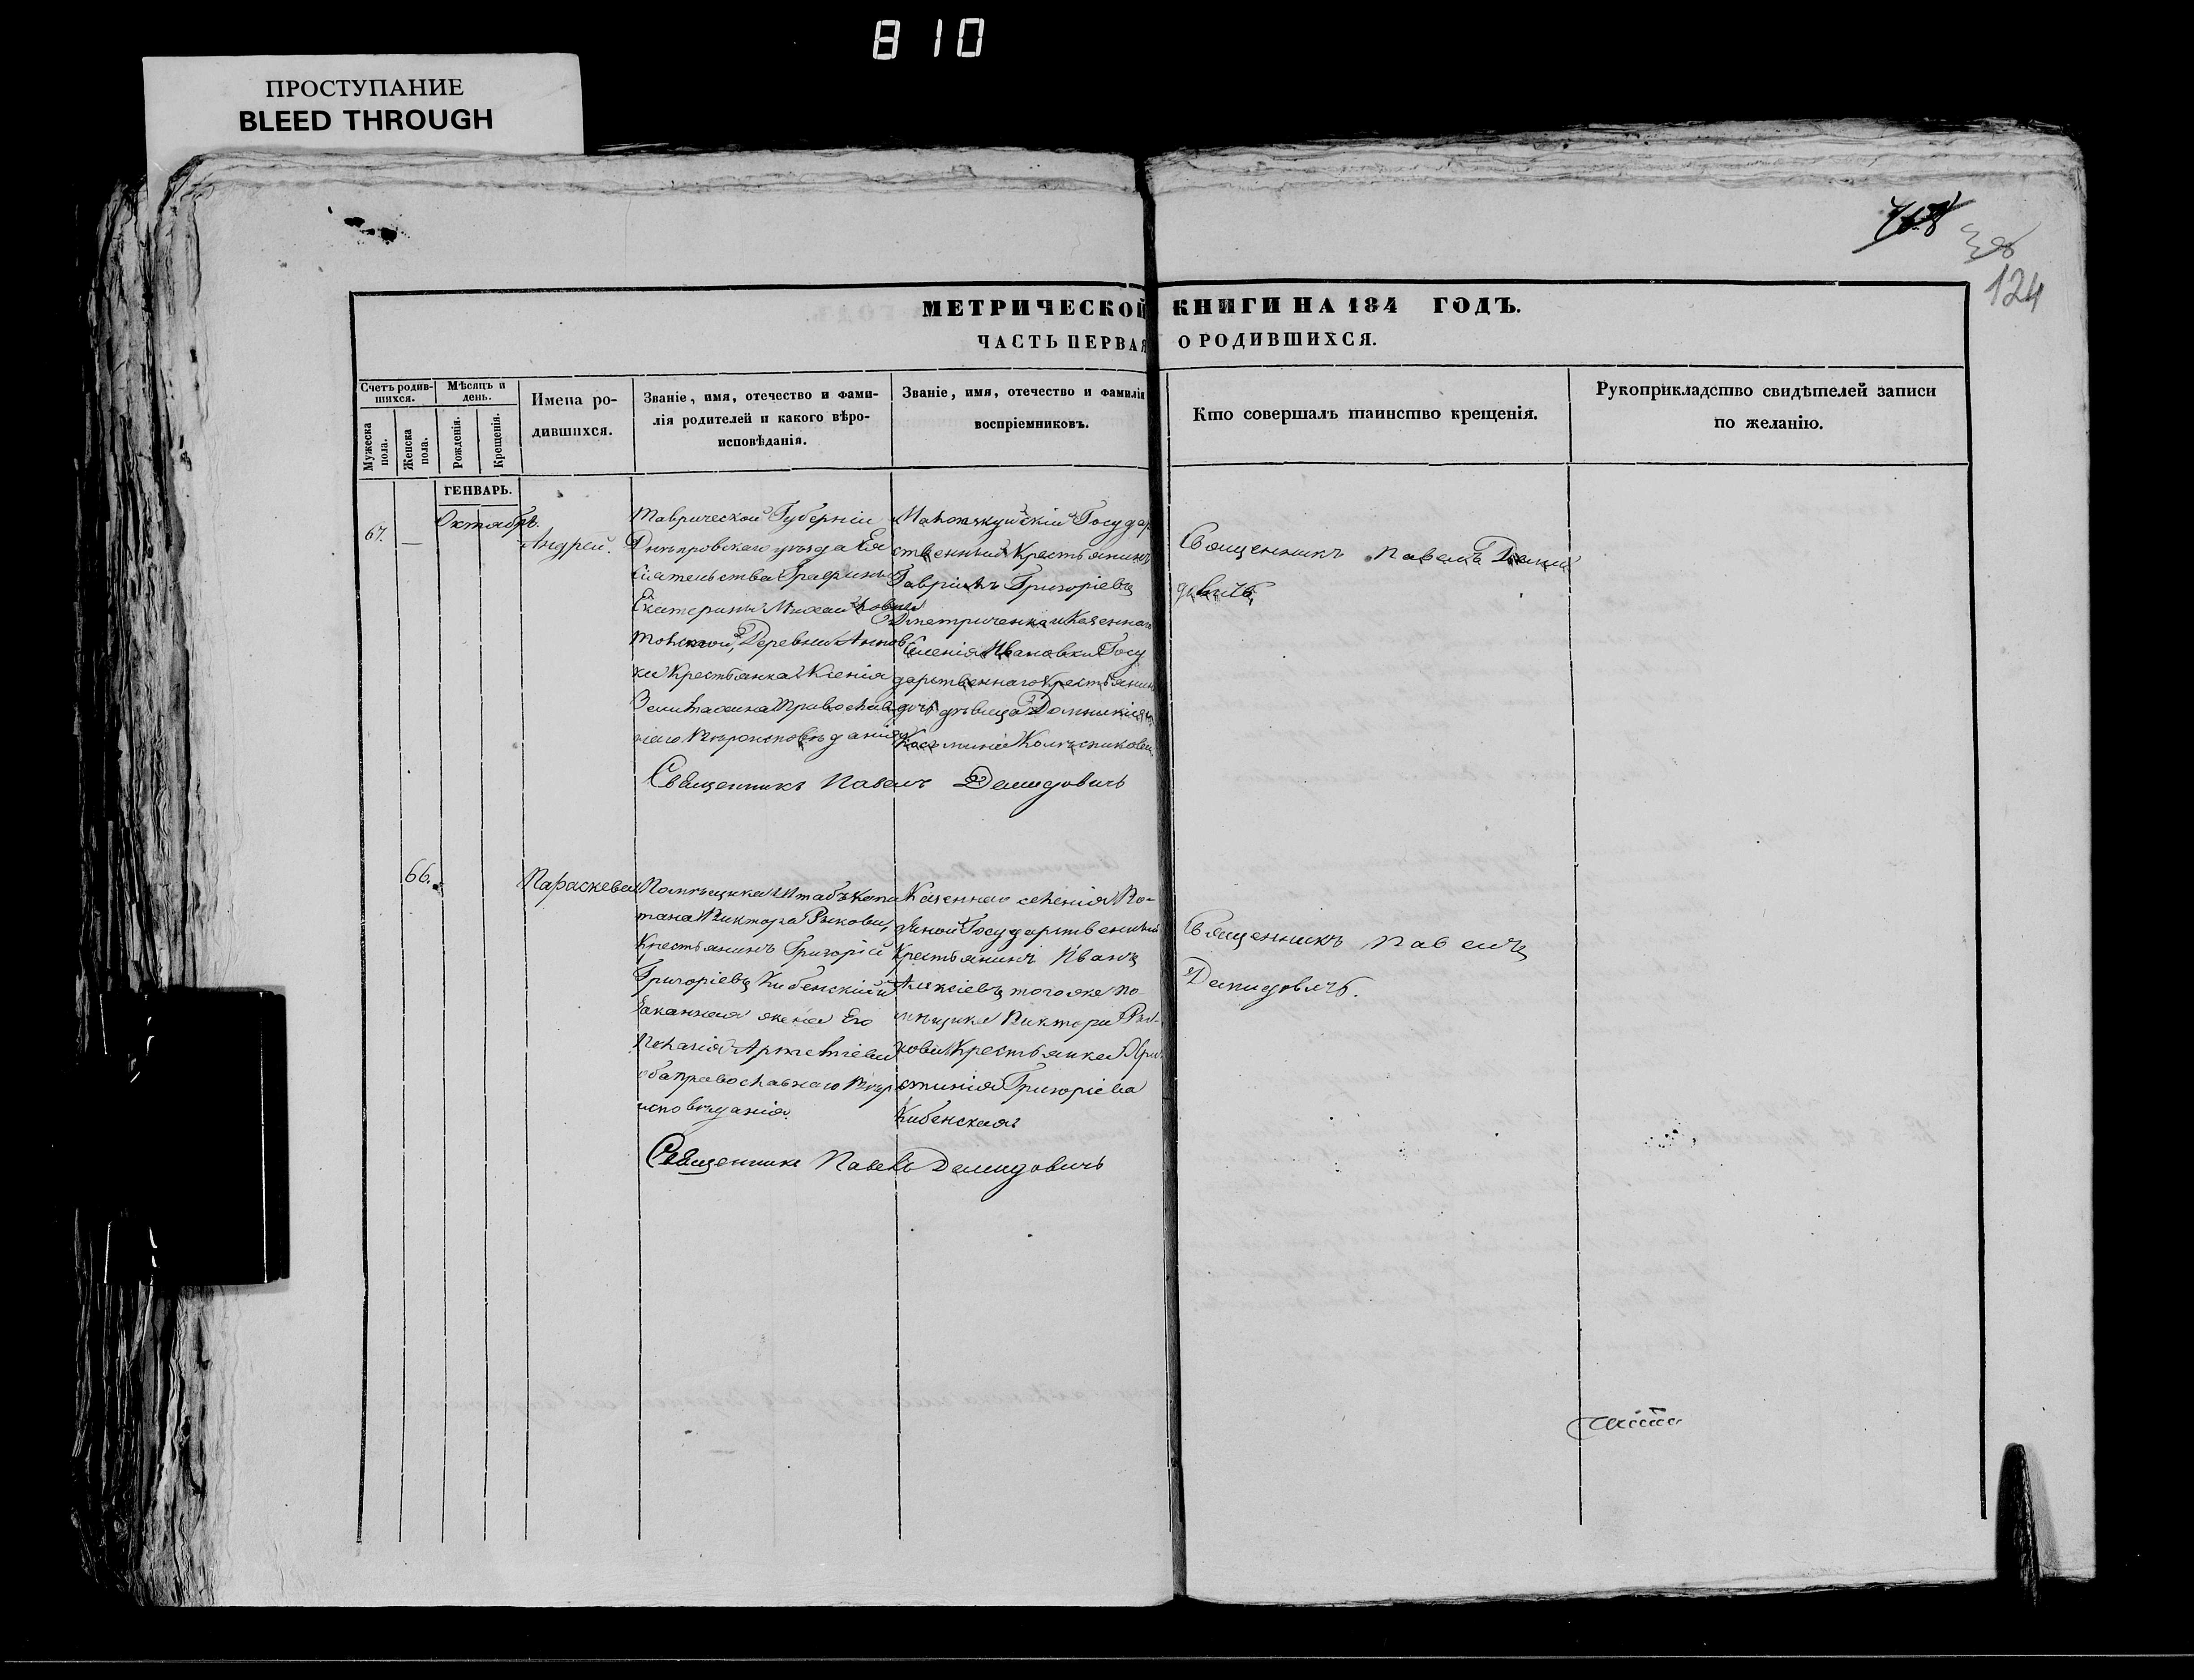 810
ПРОСТУПАНИЕ
BLEED THROUGH
124
МЕТРИЧЕСКОЙ КНИГИ НА 184 ГОДЪ.
ЧАСТЬ ПЕРВАЯ О РОДИВШИХСЯ.
Счетъ родив-
шихся.
Мужеска пола.
Женска пола.
Мѣсяцъ и
день.
Рожденія.
Крещенія.
Имена ро-
дившихся.
Званіе, имя, отечество и фами-
лія родителей и какого вѣро-
исповѣданія.
Званіе, имя, отечество и фамилія
воспріемниковъ.
Кто совершалъ таинство крещенія.
Рукоприкладство свидѣтелей записи
по желанію.
ГЕНВАРЬ.
Октябрь.
67.
—
Андрей.
Таврической Губерніи
Днѣпровскаго уѣзда Ея
Сіятельства Графини
Екатерины Михайловны
Толстой, Деревни Аннов
ки Крестьянка Ксенія
Православ
наго Вѣроисповѣданія
Государ
ственный Крестьянинъ
Гавріилъ Григоріевъ
Дметриченко и Казеннаго
Селенія Ивановки Госу
дарственнаго Крестьянина
дочь дѣвица Домникія
Колѣсникова
Священникъ Павелъ Деми
довичъ
Священникъ Павелъ Демидовичъ
66.
Параскева
Помѣщика Штабъ Капи
тана Виктора Рыкова,
Крестьянинъ Григорій
Григоріевъ Кибенскій и
Законная жена Его
Пелагія
оба православнаго Вѣро
исповѣданія.
Казеннаго селенія
Государственный
Крестьянинъ Иванъ
Алексіевъ того же по
мѣщика Виктора Ры-
кова Крестьянка Хри
стинія Григоріева
Кибенская
Священникъ Павелъ
Демидовичъ.
Священникъ Павелъ Демидовичъ